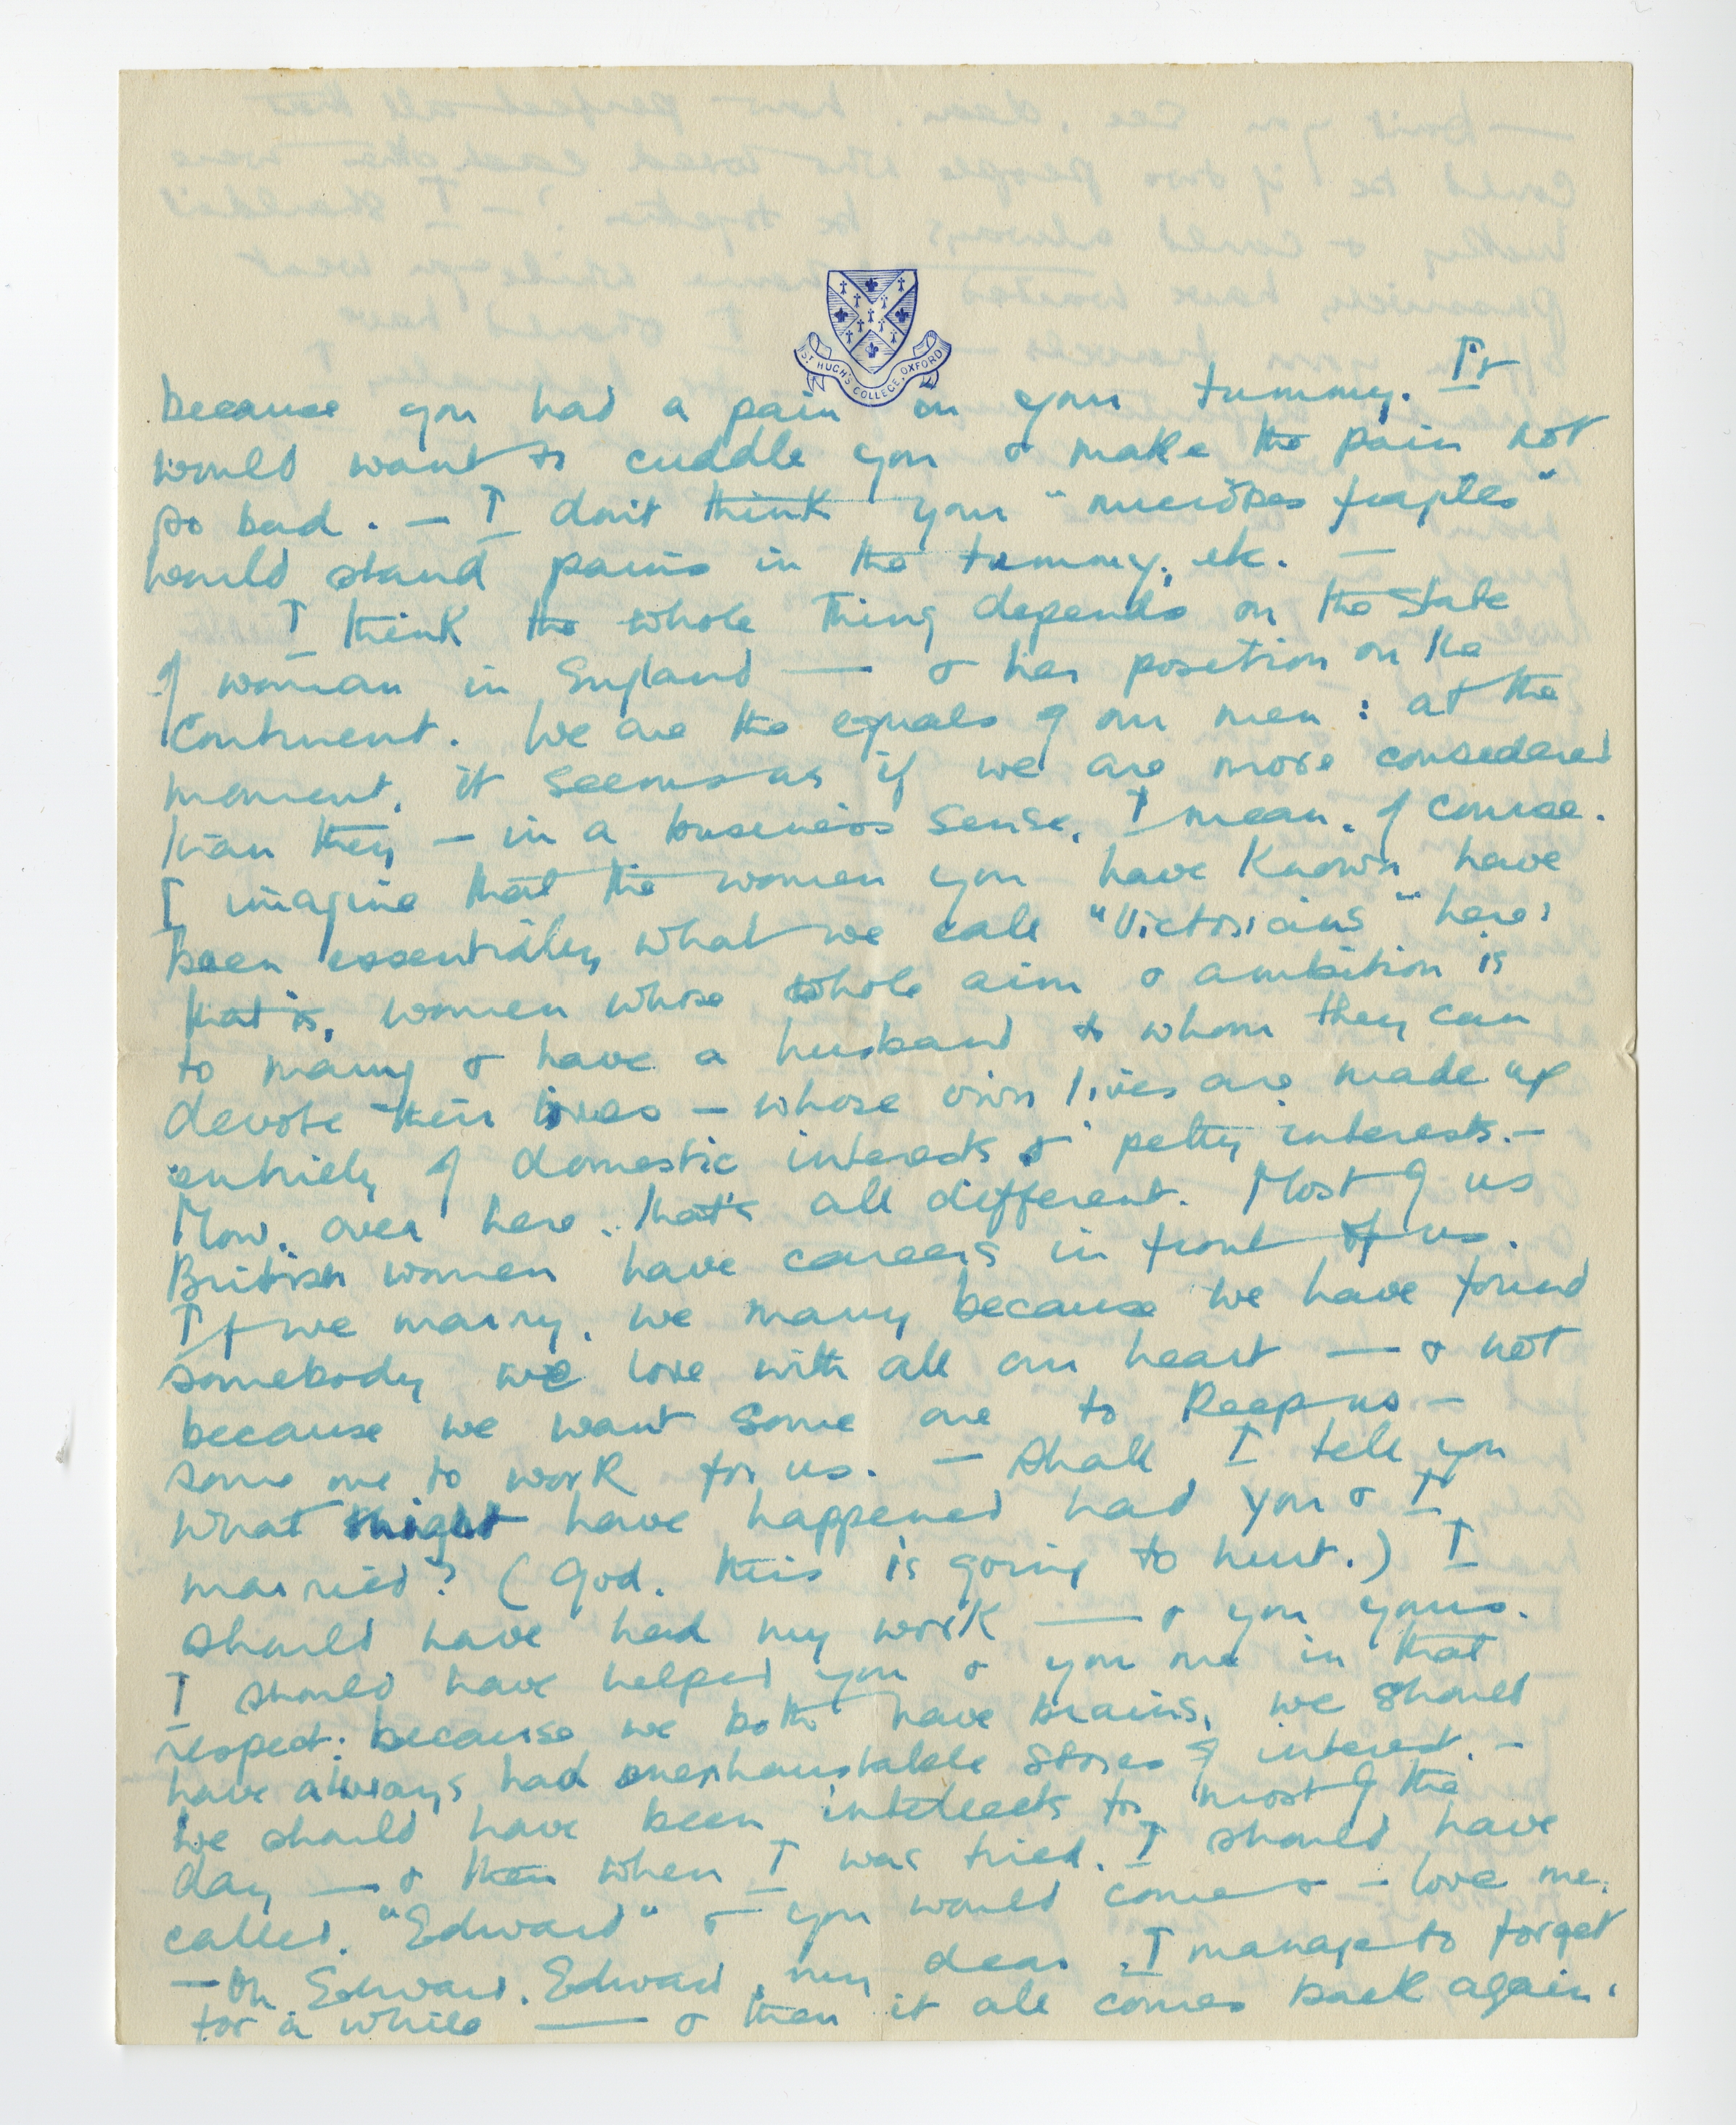 ST HUGH'S COLLEGE, OXFORD
because you had a pain in your tummy. It
would want to cuddle you & make the pain not
so bad. — I don't think your "
would stand pains in the tummy, etc. —
I think the whole thing depends on the state
of woman in England — & her position on the
Continent. We are the equals of our men: at the
moment, it seems as if we are more considered
than they — in a business sense, I mean, of course.
I imagine that the women you have known have
been essentially what we call "Victorians" here:
that is, women whose whole aim & ambition is
to marry & have a husband to whom they can
devote their lives — whose own lives are made up
entirely of domestic interests & petty interests. —
Now, over here, that's all different. Most of us
British women have careers in front of us.
If we marry, we marry because we have found
somebody we love with all our heart — & not
because we want some one to keep us —
some one to work for us. — Shall I tell you
what might have happened had you & I
married? (God, this is going to hurt.) I
should have had my work — & you yours.
I should have helped you & you me in that
respect: because we both have brains, we should
have always had inexhaustable stores of interest. —
We should have been intellects for most of the
day — & then when I was tired, I should have
called, "Edward" & you would come & — love me.
— Oh Edward, Edward, my dear, I manage to forget
for a while — & then it all comes back again.